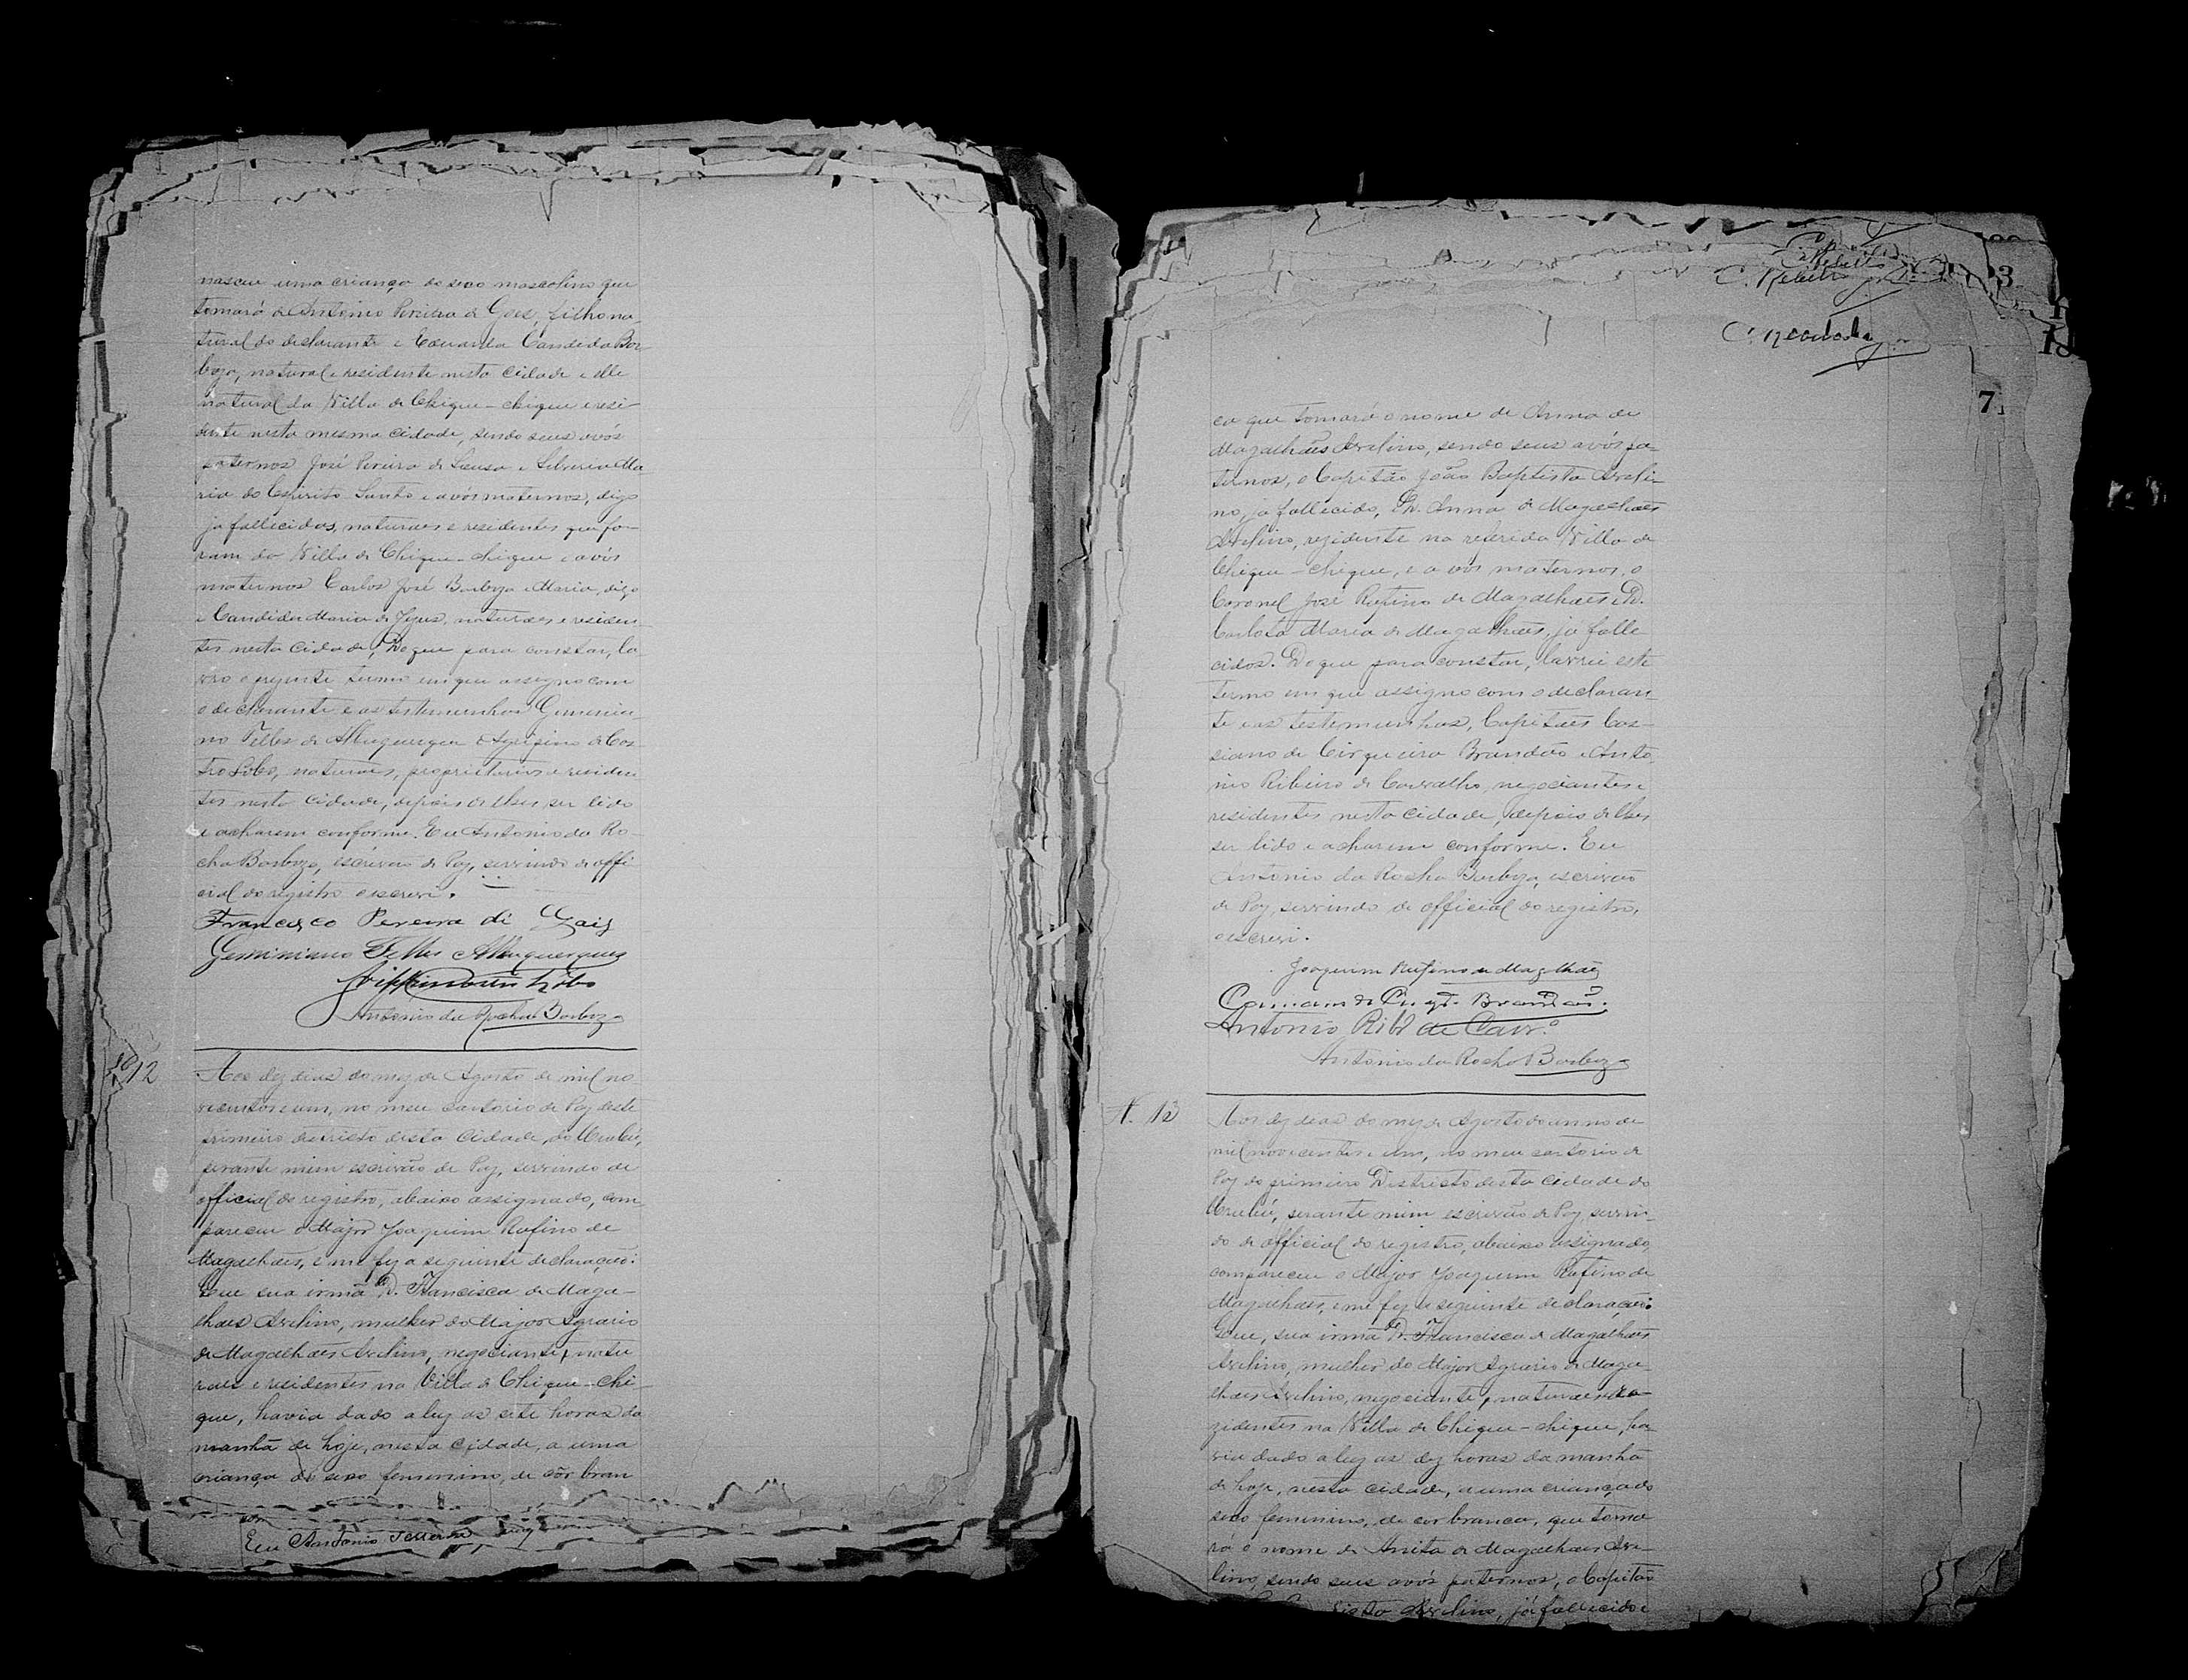 nasceu uma criança do sexo mascolino que
tomará de Antonio Pereira de Goes, filho na
tural do declarante e Eduarda Candida Bar
boza, natural e residente nesta cidade e elle
natural da Villa de Chique-chique e resi
dente nesta mesma cidade, sendo seus avós
paternos José Pereira de Sousa e Liberia Ma
ria do Espirito Santo e avós maternos, digo
ja fallecidos, naturaes e residentes que fo-
ram da Villa de Chique-chique e avós
maternos Carlos José Barboza e Maria, digo
e Candida Maria de Jesus, naturaes e residen
tes nesta cidade, Do que para constar, la
vro o prezente termo em que assigno com
o declarante e as testemunhas Geminia-
no Telles de Albuquerque e Agripino de Cas
tro Lobo, naturaes, proprietarios e residen
tes nesta cidade, depois de lhes ser lido
e acharem conforme. Eu Antonio da Ro-
cha Barboza, escrivão de Paz, servindo de offi
cial do registro o escrevi.
Francisco Pereira di Gois
Geminiano Telles Albuquerque
Lobo
Antonio da Rocha Barboza
Nº 12
Aos dez dias do mez de Agosto de mil no
vecentos e um, no meu cartorio de Paz deste
primeiro districto desta Cidade, do Urubú,
perante mim escrivão de Paz, servindo de
official do registro, abaixo assignado, com
pareceu o Major Joaquim Rufino de
Magalhães, e me fez a seguinte declaração:
Que sua irmã D. Francisca de Maga-
lhaes Avelino, mulher do Major Agrario
de Magalhães Avelino, negociante, natu
raes e residentes na Villa de Chique-chi-
que, havia dado a luz as sete horas da
manhã de hoje, nesta cidade, a uma
criança do sexo femenino, de côr bran
Eu Antonio
C. Rebello
3
7
ca que tomará o nome de Anna de
Magalhães Avelino, sendo seus avós pa-
ternos, o Capitão João Baptista Aveli-
no, ja fallecido, D. Anna de Magalhaes
Avelino, rezidente na referida Villa de
Chique-chique, e avós maternos, o
Coronel José Rufino de Magalhaes e D.
Carlota Maria de Magalhaes, ja falle
cidos. Do que para constar, lavrei este
termo em que assigno com o declaran
te e as testemunhas, Capitães Cas-
siano de Cirqueira Brandão e Anto
nio Ribeiro de Carvalho, negociantes e
residentes nesta cidade, depois de lhes
ser lido e acharem conforme. Eu
Antonio da Rocha Barboza, escrivão
de Paz, servindo de official do registro,
o escrevi.
Joaquim Rufino de Magalhães
Cassiano de Cirqª. Brandão.
Antonio Ribº de Carvº
Antonio da Rocha Barboza
N. 13
Aos dez dias do mez de Agosto do anno de
mil novecentos e um, no meu cartorio de
Paz do primeiro Districto desta Cidade do
Urubú, perante mim escrivão de Paz, servin-
do de official do registro, abaixo assignado,
compareceu o Major Joaquim Rufino de
Magalhães, e me fez a seguinte declaração:
Que, sua irmã D. Francisca de Magalhães
Avelino, mulher do Major Agrario de Maga-
lhaes Avelino, negociante, naturaes e re-
zidentes na Villa de Chique-chique, ha
via dado a luz as dez horas da manhã
de hoje, nesta cidade, a uma criança do
sexo feminino, de cor branca, que toma
rá o nome de Anita de Magalhaes Ave-
lino, sendo seus avós paternos, o Capitão
Avelino, já fallecido e